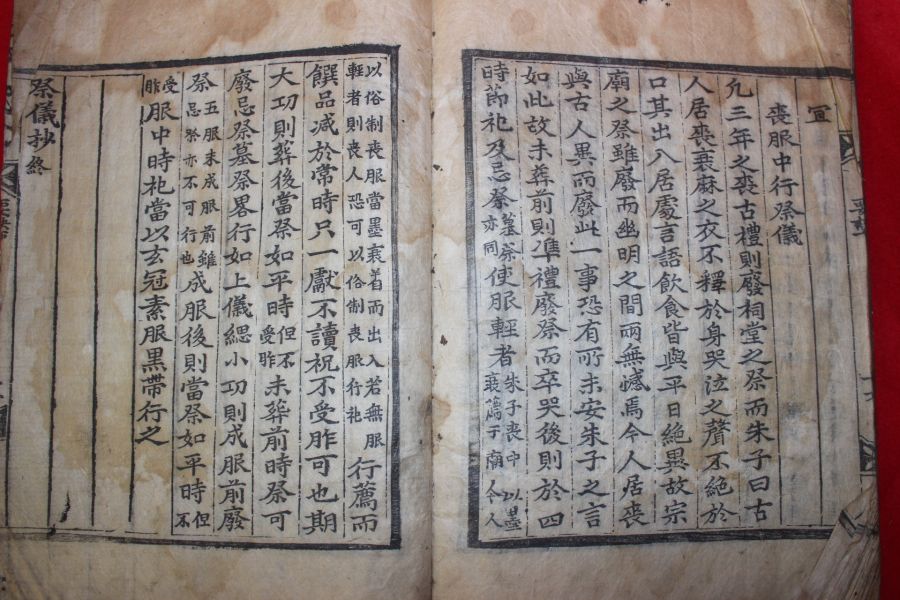 宜
喪服中行祭儀
凡三年之喪古禮則廢祠堂之祭而朱子曰古
人居喪衰麻之衣不釋於身哭泣之聲不絶於
口其出入居處言語飮食皆與平日絶異故宗
廟之祭雖廢而幽明之間兩無憾焉今人居喪
與古人異而廢此一事恐有所未安朱子之言
如此故未葬前則準禮廢祭而卒哭後則於四
時節祀及忌祭墓祭亦同使服輕者朱子喪中以墨衰薦于廟今人
以俗制喪服當墨衰着而出入若無服輕者則喪人恐可以俗制喪服行祀行薦而
饌品减於常時只一獻不讀祝不受胙可也期
大功則葬後當祭如平時但不受胙未葬前時祭可
廢忌祭墓祭畧行如上儀緦小功則成服前廢
祭五服未成服前雖忌祭亦不可行也成服後則當祭如平時但不
受胙服中時祀當以玄冠素服黑帶行之
祭儀抄終